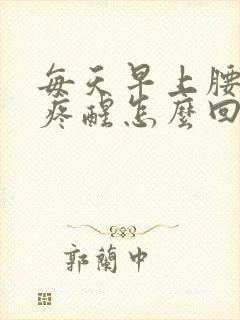 每天早上腰
疼醒怎麼回
郭蘭中